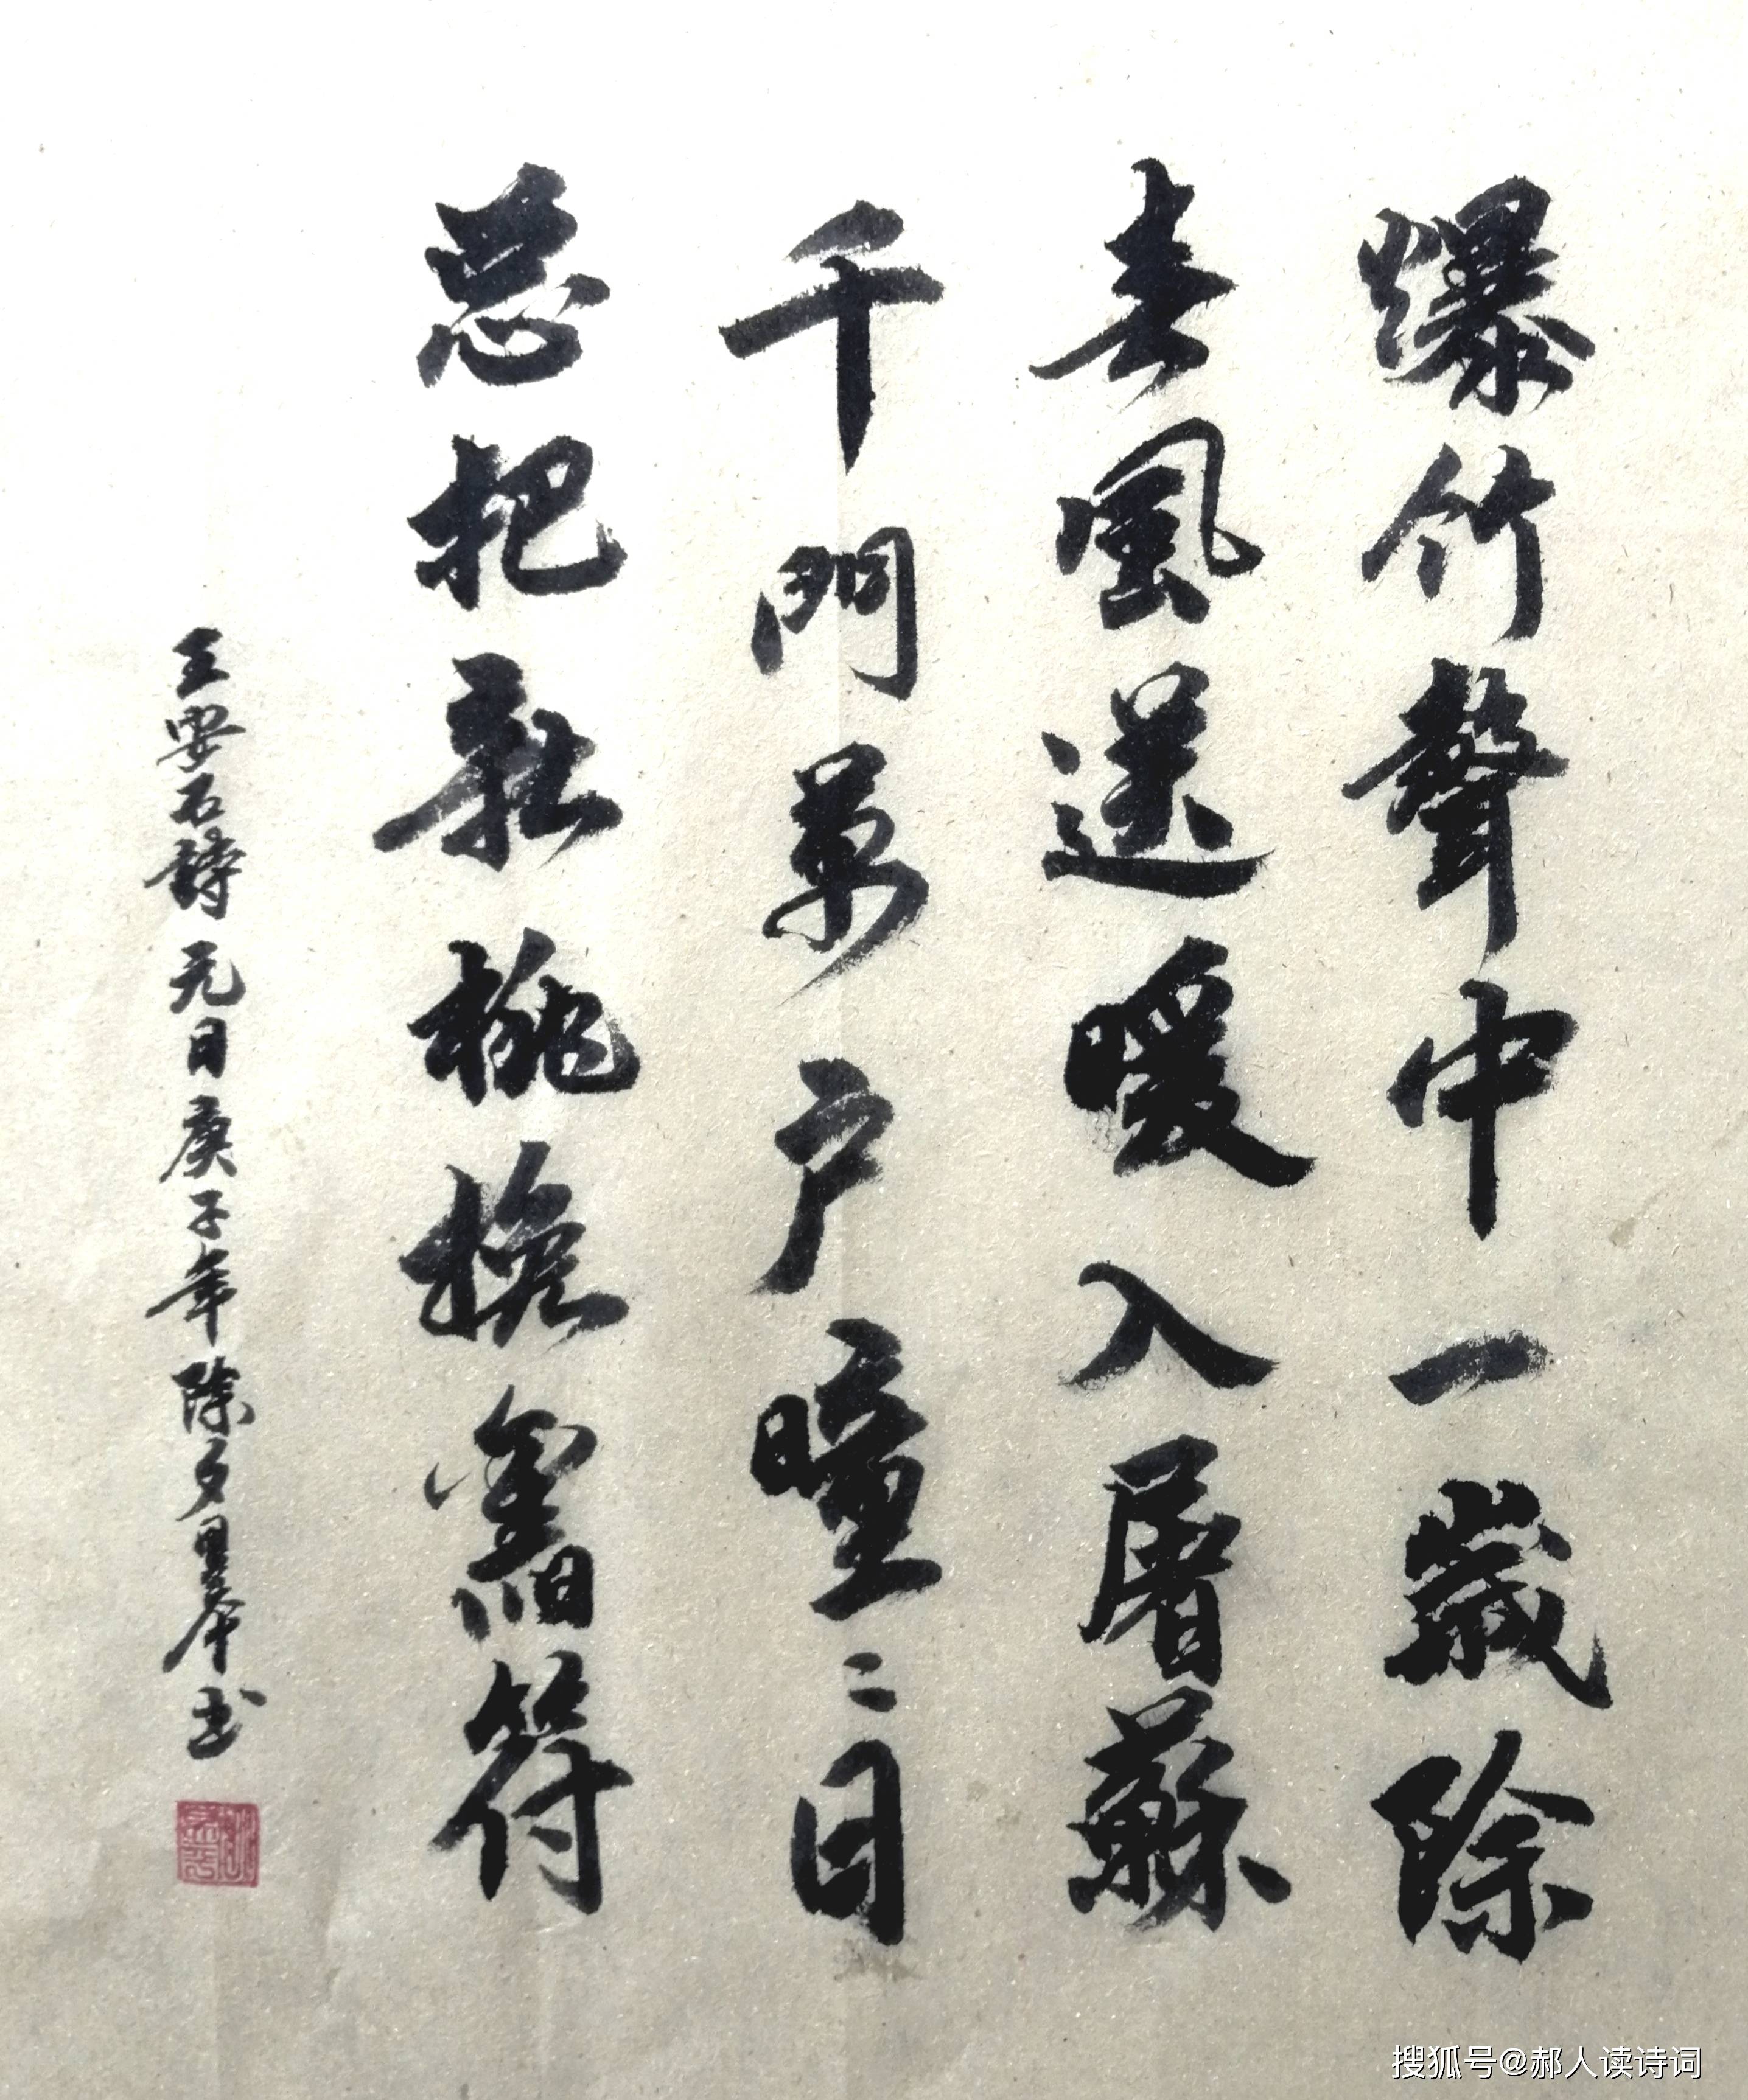 爆竹聲中一歲除
春風送暖入屠蘇
千門萬户曈〻日
总把新桃換舊符
王安石詩元日庚子年除夕书
搜狐号@郝人读诗词